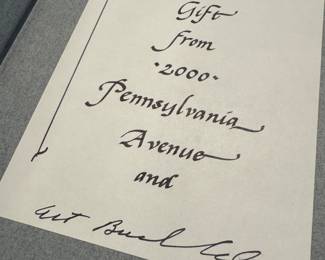 Gift
from
"2000"
Pennsylvania
Avenue
and
Art